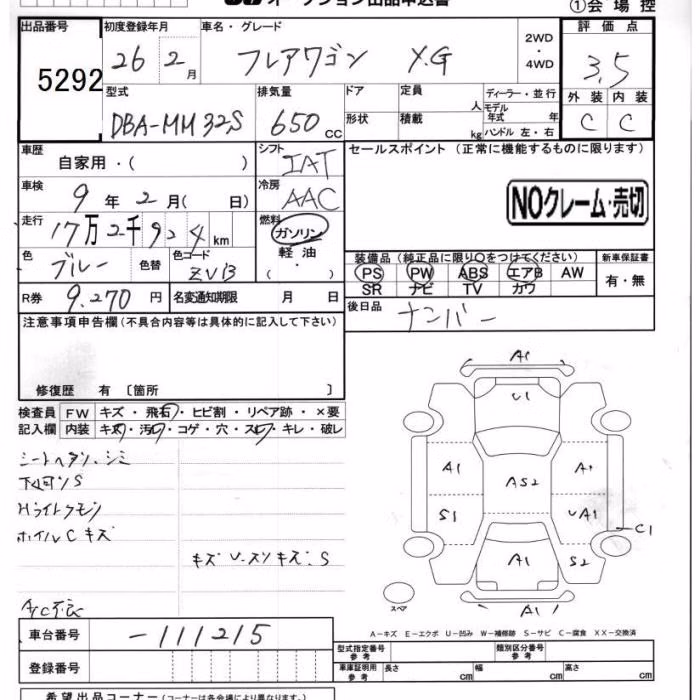 オークション出品申込書
①会場控
出品番号 初度登録年月 車名・グレード 評価点
5292 26 2月 フレアワゴン XG 2WD・4WD 3.5
型式 排気量 ドア 定員 人 ディーラー・並行 外装 内装
DBA-MM32S 650cc 形状 積載 kg モデル年式 年 ハンドル 左・右 C C
車歴 自家用・( ) シフト IAT セールスポイント(正常に機能するものに限ります)
車検 9年2月( 日) 冷房 AAC NOクレーム・売切
走行 17万2千924km 燃料 ガソリン
軽油・( )
色 ブルー 色替 色コード ZVB
装備品(純正品に限り○をつけてください) 新車保証書
PS PW ABS エアB AW 有・無
SR ナビ TV カワ
R券 9.270円 名変通知期限 月 日 後日品 ナンバー
注意事項申告欄(不具合内容等は具体的に記入して下さい)
修復歴 有 〔箇所 〕
検査員 FW キズ・飛石・ヒビ割・リペア跡・×要
記入欄 内装 キズ・汚れ・コゲ・穴・スレ・キレ・破レ
シートヘタリ、シミ
下回リS
Hライトクモリ
ホイルC キズ
キズ U・スリキズ、S
A/C不良
A1
U1
A1 A1
AS2
S1 UA1
C1
A1 S2
A1
スペア
A-キズ E-エクボ U-凹み W-補修跡 S-サビ C-腐食 XX-交換済
車台番号 -111215
型式指定番号 参考 類別区分番号 参考
登録番号
車庫証明用 参考 長さ cm 幅 cm 高さ cm
希望出品コーナー(コーナーは各会場により異なります)